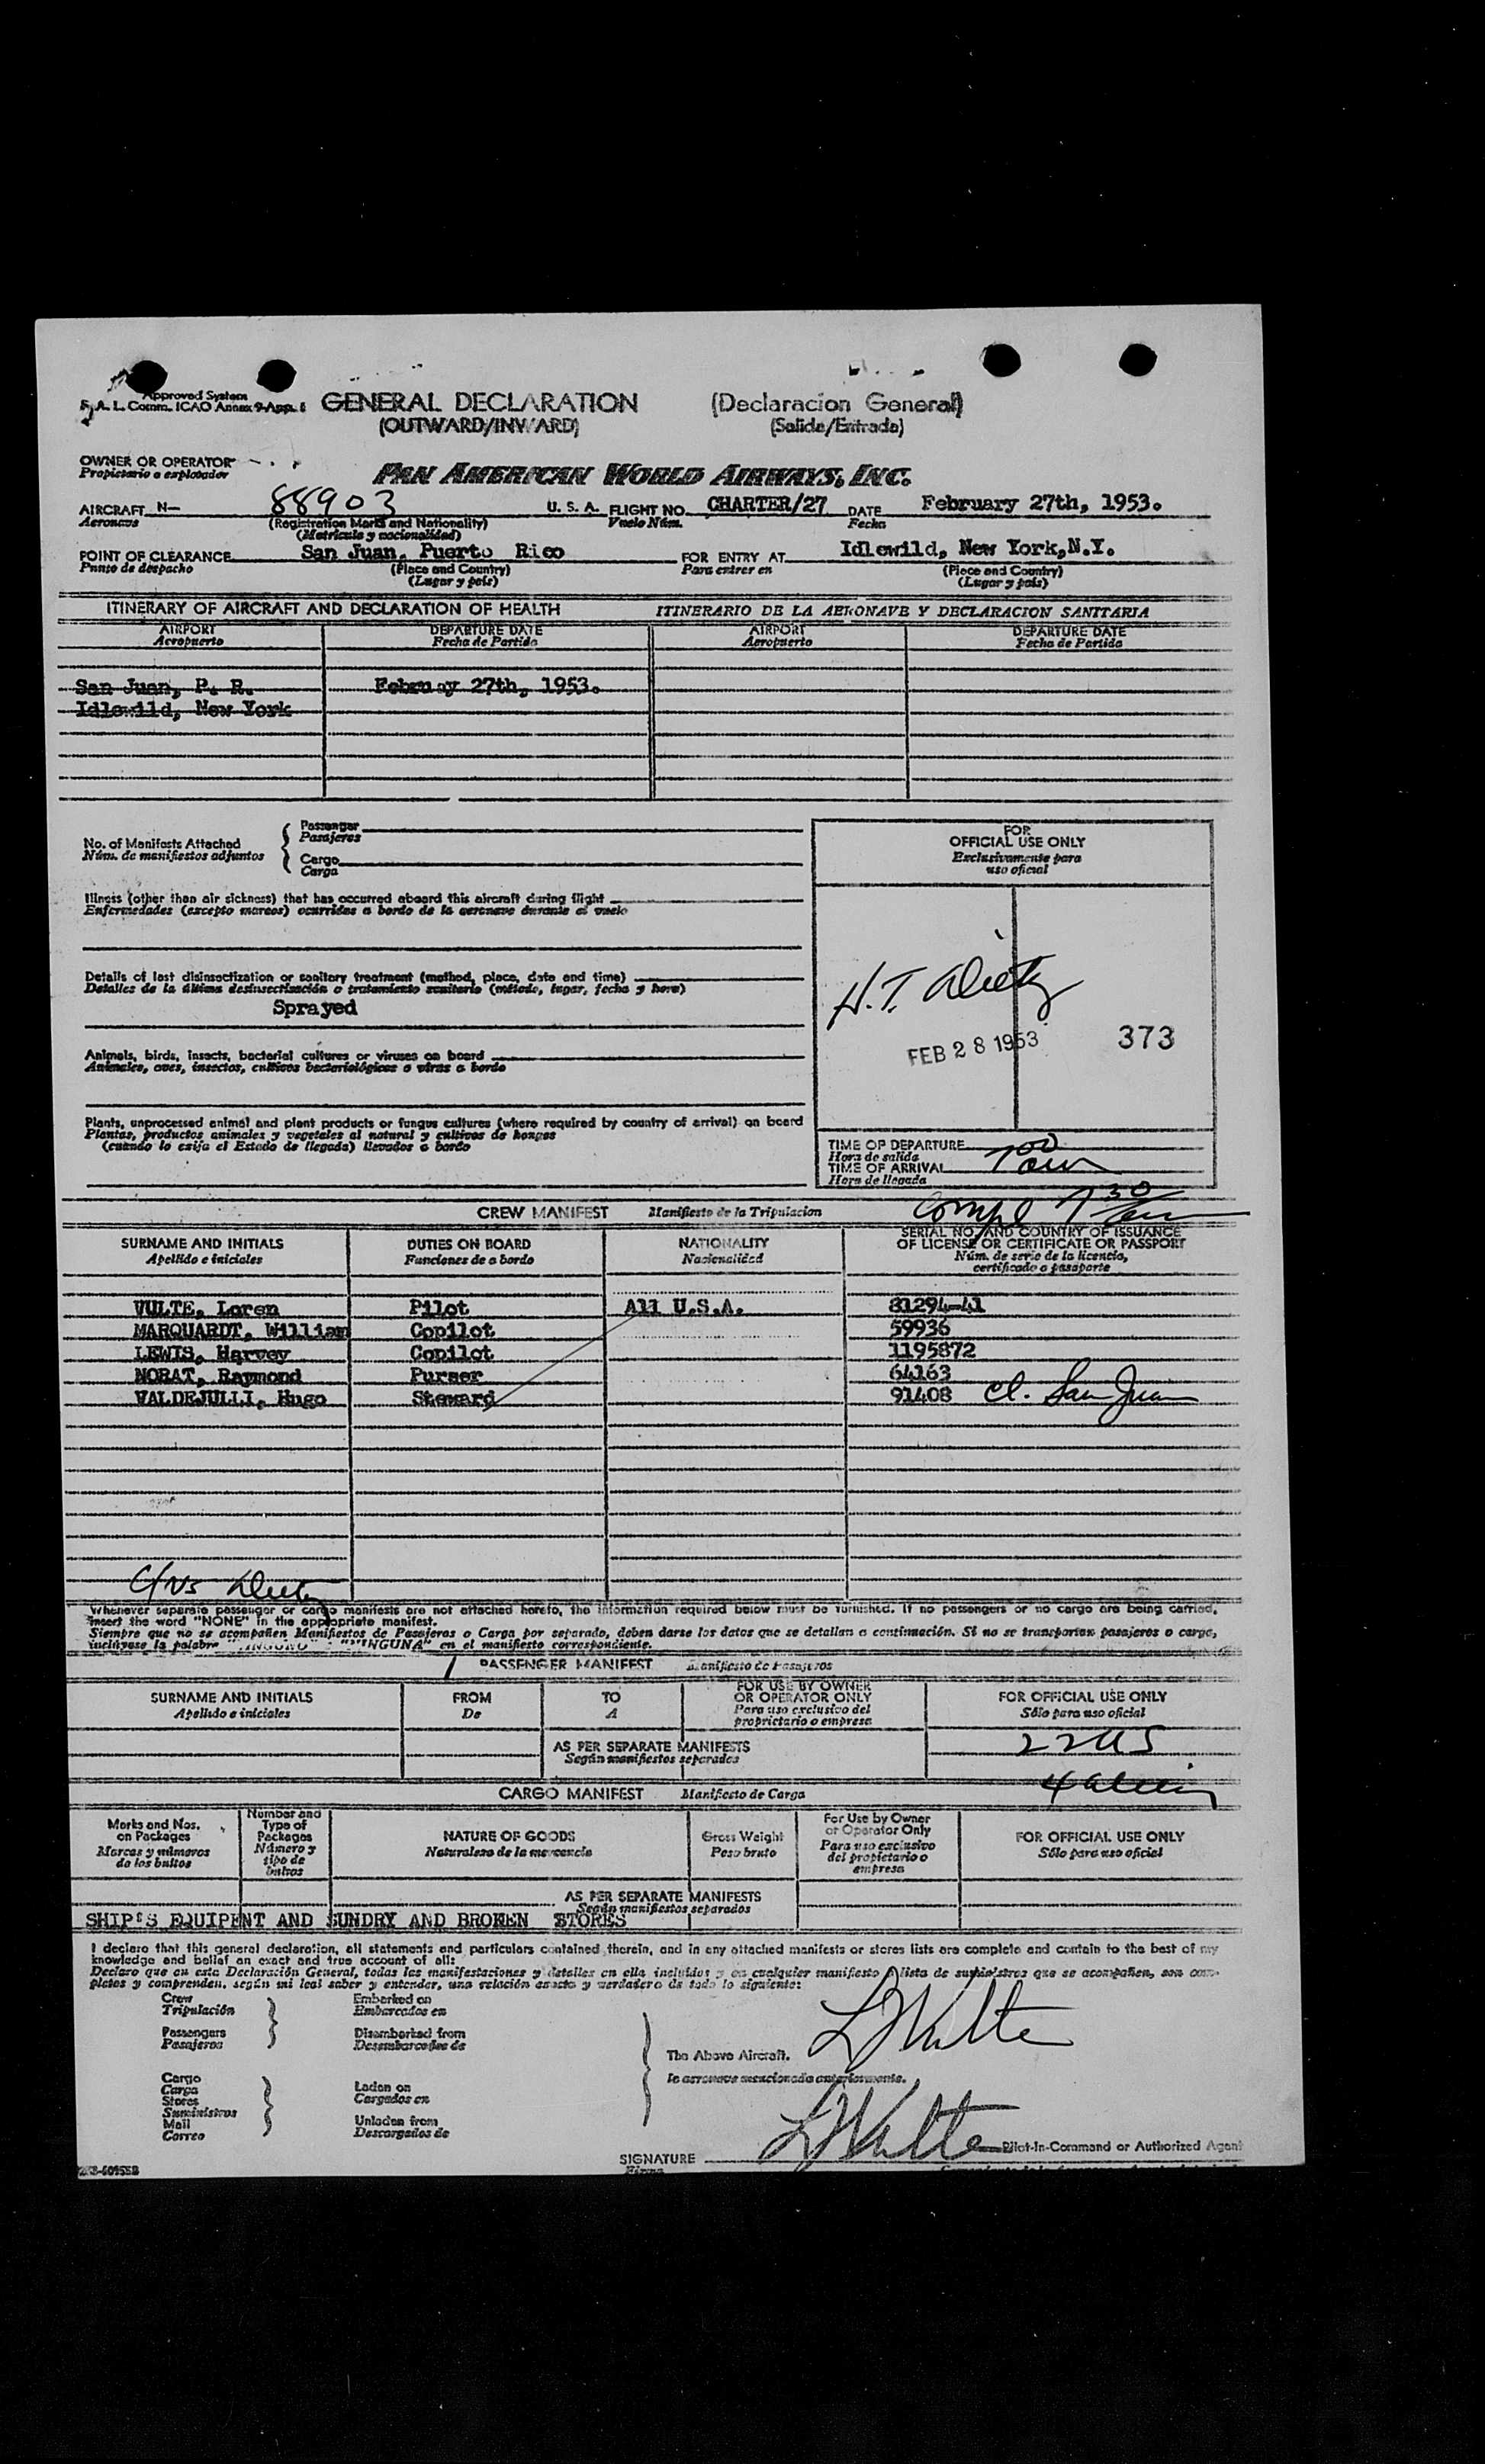 Approved System
F. A. L. Comm. ICAO Annex 9-App. 1
GENERAL DECLARATION (Declaracion General)
(OUTWARD/INWARD) (Salida/Entrada)
OWNER OR OPERATOR
Propietario o explotador
PAN AMERICAN WORLD AIRWAYS, INC.
AIRCRAFT N- 88903 U. S. A. FLIGHT NO. CHARTER/27 DATE February 27th, 1953.
Aeronave (Registration Marks and Nationality) Vuelo Núm. Fecha
(Matrícula y nacionalidad)
POINT OF CLEARANCE San Juan, Puerto Rico FOR ENTRY AT Idlewild, New York,N.Y.
Punto de despacho (Place and Country) Para entrar en (Place and Country)
(Lugar y país) (Lugar y país)
ITINERARY OF AIRCRAFT AND DECLARATION OF HEALTH ITINERARIO DE LA AERONAVE Y DECLARACION SANITARIA
AIRPORT DEPARTURE DATE AIRPORT DEPARTURE DATE
Aeropuerto Fecha de Partida Aeropuerto Fecha de Partida
San Juan, P. R. Februay 27th, 1953.
Idlewild, New York
No. of Manifests Attached
Núm. de manifiestos adjuntos
Passenger
Pasajeros
Cargo
Carga
Illness (other than air sickness) that has occurred aboard this aircraft during flight
Enfermedades (excepto mareos) ocurridas a bordo de la aeronave durante el vuelo
Details of last disinsectization or sanitary treatment (method, place, date and time)
Detalles de la última desinsectización o tratamiento sanitario (método, lugar, fecha y hora)
Sprayed
Animals, birds, insects, bacterial cultures or viruses on board
Animales, aves, insectos, cultivos bacteriológicos o virus a bordo
Plants, unprocessed animal and plant products or fungus cultures (where required by country of arrival) on board
Plantas, productos animales y vegetales al natural y cultivos de hongos
(cuando lo exija el Estado de llegada) llevados a bordo
FOR
OFFICIAL USE ONLY
Exclusivamente para
uso oficial
H.T.
FEB 28 1953 373
TIME OF DEPARTURE
Hora de salida
TIME OF ARRIVAL 7 00 am
Hora de llegada
Compl 7 30 am
CREW MANIFEST Manifiesto de la Tripulacion
SURNAME AND INITIALS DUTIES ON BOARD NATIONALITY SERIAL NO. AND COUNTRY OF ISSUANCE
OF LICENSE OR CERTIFICATE OR PASSPORT
Apellido e iniciales Funciones de a bordo Nacionalidad Núm. de serie de la licencia,
certificado o pasaporte
VULTE, Loren Pilot All U.S.A. 81294-41
MARQUARDT, William Copilot 59936
LEWIS, Harvey Copilot 1195872
NORAT, Raymond Purser 64163
VALDEJULLI, Hugo Steward 91408 cl. San Juan
Whenever separate passenger or cargo manifests are not attached hereto, the information required below must be furnished. If no passengers or no cargo are being carried,
insert the word "NONE" in the appropriate manifest.
Siempre que no se acompañen Manifiestos de Pasajeros o Carga por separado, deben darse los datos que se detallan a continuación. Si no se transportan pasajeros o carga,
inclúyase la palabra "NINGUNO" : "NINGUNA" en el manifiesto correspondiente.
PASSENGER MANIFEST Manifiesto de Pasajeros
SURNAME AND INITIALS FROM TO FOR USE BY OWNER
OR OPERATOR ONLY FOR OFFICIAL USE ONLY
Apellido e iniciales De A Para uso exclusivo del
proprietario o empresa Sólo para uso oficial
AS PER SEPARATE MANIFESTS
Según manifiestos separados
22 US
4
CARGO MANIFEST Manifiesto de Carga
Marks and Nos.
on Packages
Marcas y números
de los bultos
Number and
Type of
Packages
Número y
tipo de
bultos
NATURE OF GOODS
Naturaleza de la mercancía
Gross Weight
Peso bruto
For Use by Owner
or Operator Only
Para uso exclusivo
del propietario o
empresa
FOR OFFICIAL USE ONLY
Sólo para uso oficial
AS PER SEPARATE MANIFESTS
Según manifiestos separados
SHIP'S EQUIPENT AND SUNDRY AND BROKEN STORES
I declare that this general declaration, all statements and particulars contained therein, and in any attached manifests or stores lists are complete and contain to the best of my
knowledge and belief an exact and true account of all:
Declaro que en esta Declaración General, todas las manifestaciones y detalles en ella incluidos y en cualquier manifiesto o lista de suministros que se acompañen, son com-
pletos y comprenden, según mi leal saber y entender, una relación exacta y verdadera de todo lo siguiente:
Crew
Tripulación
Passengers
Pasajeros
Embarked on
Embarcados en
Disembarked from
Desembarcados de
Cargo
Carga
Stores
Suministros
Mail
Correo
Laden on
Cargados en
Unladen from
Descargados de
The Above Aircraft.
la aeronave mencionada anteriormente.
L Vulte
L Vulte
SIGNATURE Pilot-in-Command or Authorized Agent
Firma